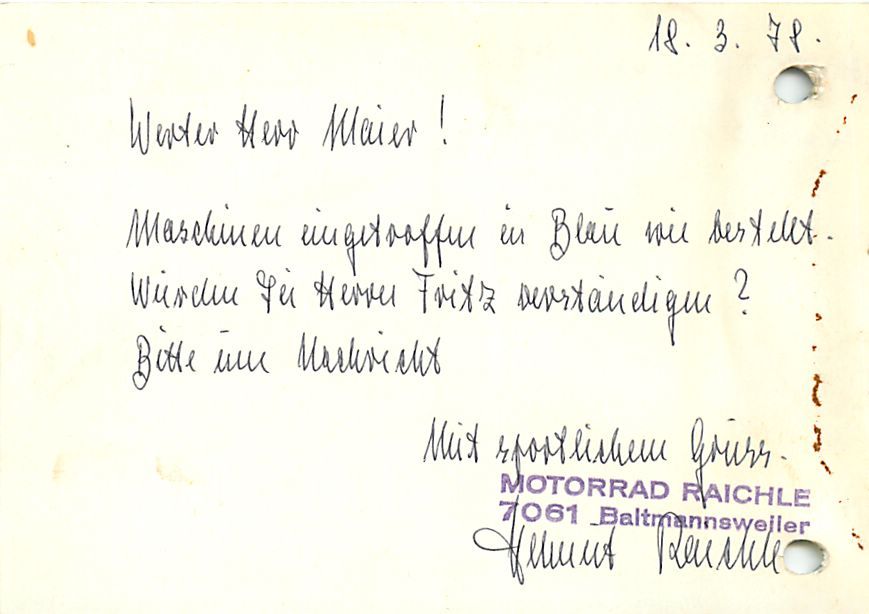 18. 3. 78.
Werter Herr Maier!
Maschinen eingetroffen in Blau wie bestellt.
Würden Sie Herrn Fritz verständigen?
Bitte um Nachricht
Mit sportlichem Gruss.
MOTORRAD RAICHLE
7061 Baltmannsweiler
Helmut Raichle